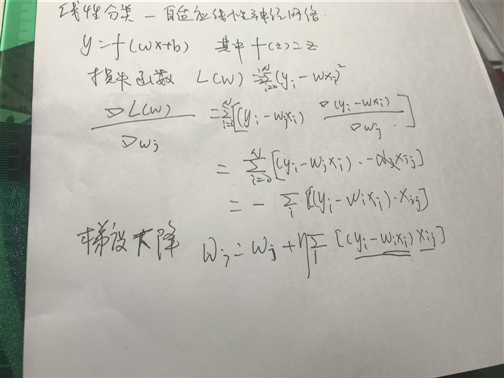 线性分类 — 自适应线性神经网络
y = f(wx+b) 其中 f(z) = z
损失函数 L(w) = Σ_{i=0}^{N} (y_i - wx_i)²
▽L(w) / ▽w_j = Σ_{i=0}^{N} [(y_i - w_jx_i) ▽(y_i - wx_i) / ▽w_j]
= Σ_{i=0}^{N} [(y_i - w_jx_i) · - x_{ij}]
= - Σ_i [(y_i - w_ix_i) · x_{ij}]
梯度下降 w_j = w_j + η Σ_i [(y_i - w_ix_i) x_{ij}]